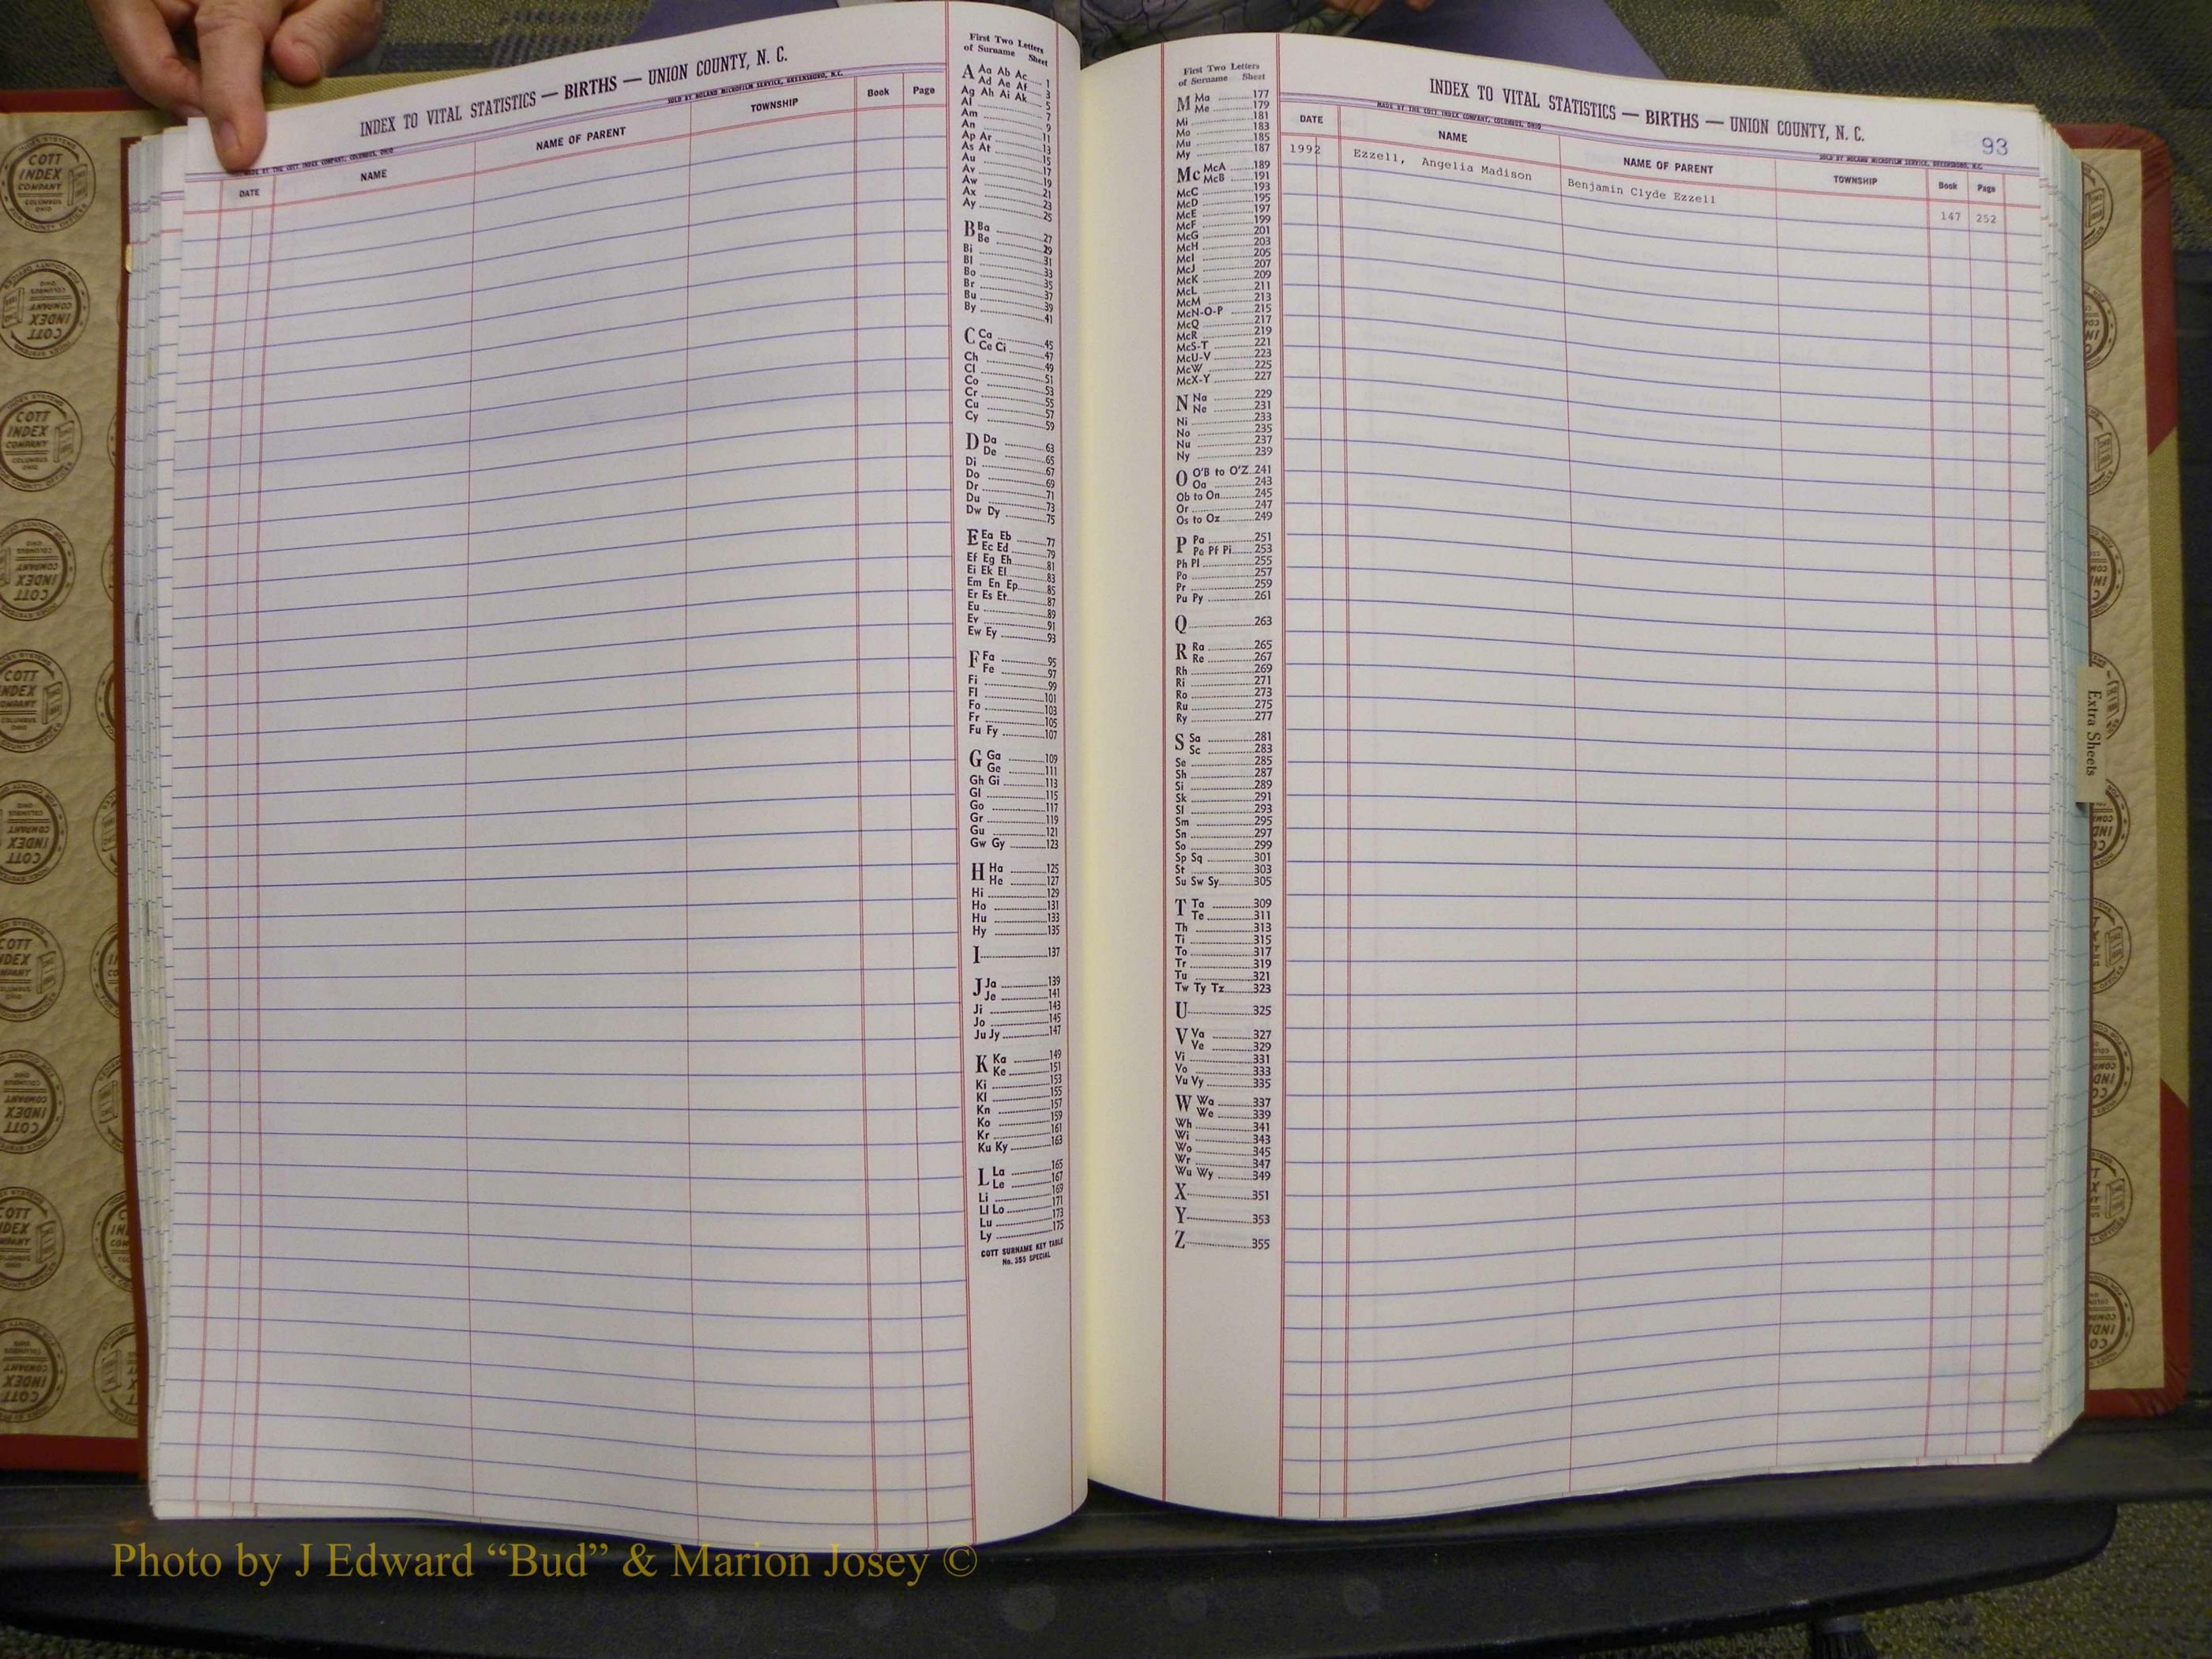 INDEX TO VITAL STATISTICS — BIRTHS — UNION COUNTY, N. C.
MADE BY THE COTT INDEX COMPANY, COLUMBUS, OHIO
SOLD BY NOLAND MICROFILM SERVICE, GREENSBORO, N.C.
DATE NAME NAME OF PARENT TOWNSHIP Book Page
First Two Letters
of Surname Sheet
A Aa Ab Ac 1
Ad Ae Af 3
Ag Ah Ai Ak 5
Al 7
Am 9
An 11
Ap Ar 13
As At 15
Au 17
Av 19
Aw 21
Ax 23
Ay 25
B Ba 27
Be 29
Bi 31
Bl 33
Bo 35
Br 37
Bu 39
By 41
C Ca 45
Ce Ci 47
Ch 49
Cl 51
Co 53
Cr 55
Cu 57
Cy 59
D Da 63
De 65
Di 67
Do 69
Dr 71
Du 73
Dw Dy 75
E Ea Eb 77
Ec Ed 79
Ef Eg Eh 81
Ei Ek El 83
Em En Ep 85
Er Es Et 87
Eu 89
Ev 91
Ew Ey 93
F Fa 95
Fe 97
Fi 99
Fl 101
Fo 103
Fr 105
Fu Fy 107
G Ga 109
Ge 111
Gh Gi 113
Gl 115
Go 117
Gr 119
Gu 121
Gw Gy 123
H Ha 125
He 127
Hi 129
Ho 131
Hu 133
Hy 135
I 137
J Ja 139
Je 141
Ji 143
Jo 145
Ju Jy 147
K Ka 149
Ke 151
Ki 153
Kl 155
Kn 157
Ko 159
Kr 161
Ku Ky 163
L La 165
Le 167
Li 169
Ll Lo 171
Lu 173
Ly 175
COTT SURNAME KEY TABLE
No. 355 SPECIAL
First Two Letters
of Surname Sheet
M Ma 177
Me 179
Mi 181
Mo 183
Mu 185
My 187
Mc McA 189
McB 191
McC 193
McD 195
McE 197
McF 199
McG 201
McH 203
McI 205
McJ 207
McK 209
McL 211
McM 213
McN-O-P 215
McQ 217
McR 219
McS-T 221
McU-V 223
McW 225
McX-Y 227
N Na 229
Ne 231
Ni 233
No 235
Nu 237
Ny 239
O O'B to O'Z 241
Oa 243
Ob to On 245
Or 247
Os to Oz 249
P Pa 251
Pe Pf Pi 253
Ph Pl 255
Po 257
Pr 259
Pu Py 261
Q 263
R Ra 265
Re 267
Rh 269
Ri 271
Ro 273
Ru 275
Ry 277
S Sa 281
Sc 283
Se 285
Sh 287
Si 289
Sk 291
Sl 293
Sm 295
Sn 297
So 299
Sp Sq 301
St 303
Su Sw Sy 305
T Ta 309
Te 311
Th 313
Ti 315
To 317
Tr 319
Tu 321
Tw Ty Tz 323
U 325
V Va 327
Ve 329
Vi 331
Vo 333
Vu Vy 335
W Wa 337
We 339
Wh 341
Wi 343
Wo 345
Wr 347
Wu Wy 349
X 351
Y 353
Z 355
INDEX TO VITAL STATISTICS — BIRTHS — UNION COUNTY, N. C.
93
MADE BY THE COTT INDEX COMPANY, COLUMBUS, OHIO
SOLD BY NOLAND MICROFILM SERVICE, GREENSBORO, N.C.
DATE NAME NAME OF PARENT TOWNSHIP Book Page
1992 Ezzell, Angelia Madison Benjamin Clyde Ezzell 147 252
Extra Sheets
COTT
INDEX
COMPANY
COLUMBUS
OHIO
Photo by J Edward “Bud” & Marion Josey ©